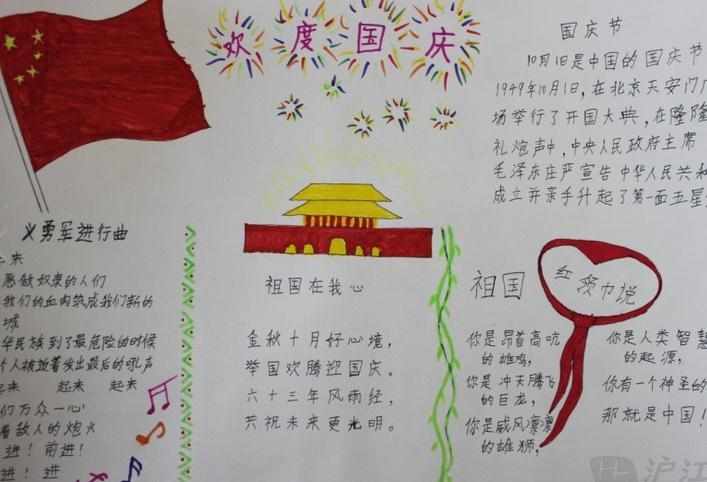 欢度国庆
国庆节
10月1日是中国的国庆节
1949年10月1日,在北京天安门广
场举行了开国大典,在隆隆
礼炮声中,中央人民政府主席
毛泽东庄严宣告中华人民共和
成立并亲手升起了第一面五星
义勇军进行曲
来
愿做奴隶的人们
我们的血肉筑成我们新的
城
华民族到了最危险的时候
个人被迫着发出最后的吼声
起来 起来 起来
们万众一心
着敌人的炮火
进!前进!
进!进
祖国在我心
金秋十月好心境,
举国欢腾迎国庆。
六十三年风雨经,
共祝未来更光明。
祖国
红领巾说
你是昂首高吭
的雄鸡,
你是冲天腾飞
的巨龙,
你是威风凛凛
的雄狮,
你是人类智慧
的起源,
你有一个神圣的
那就是中国!
沪江